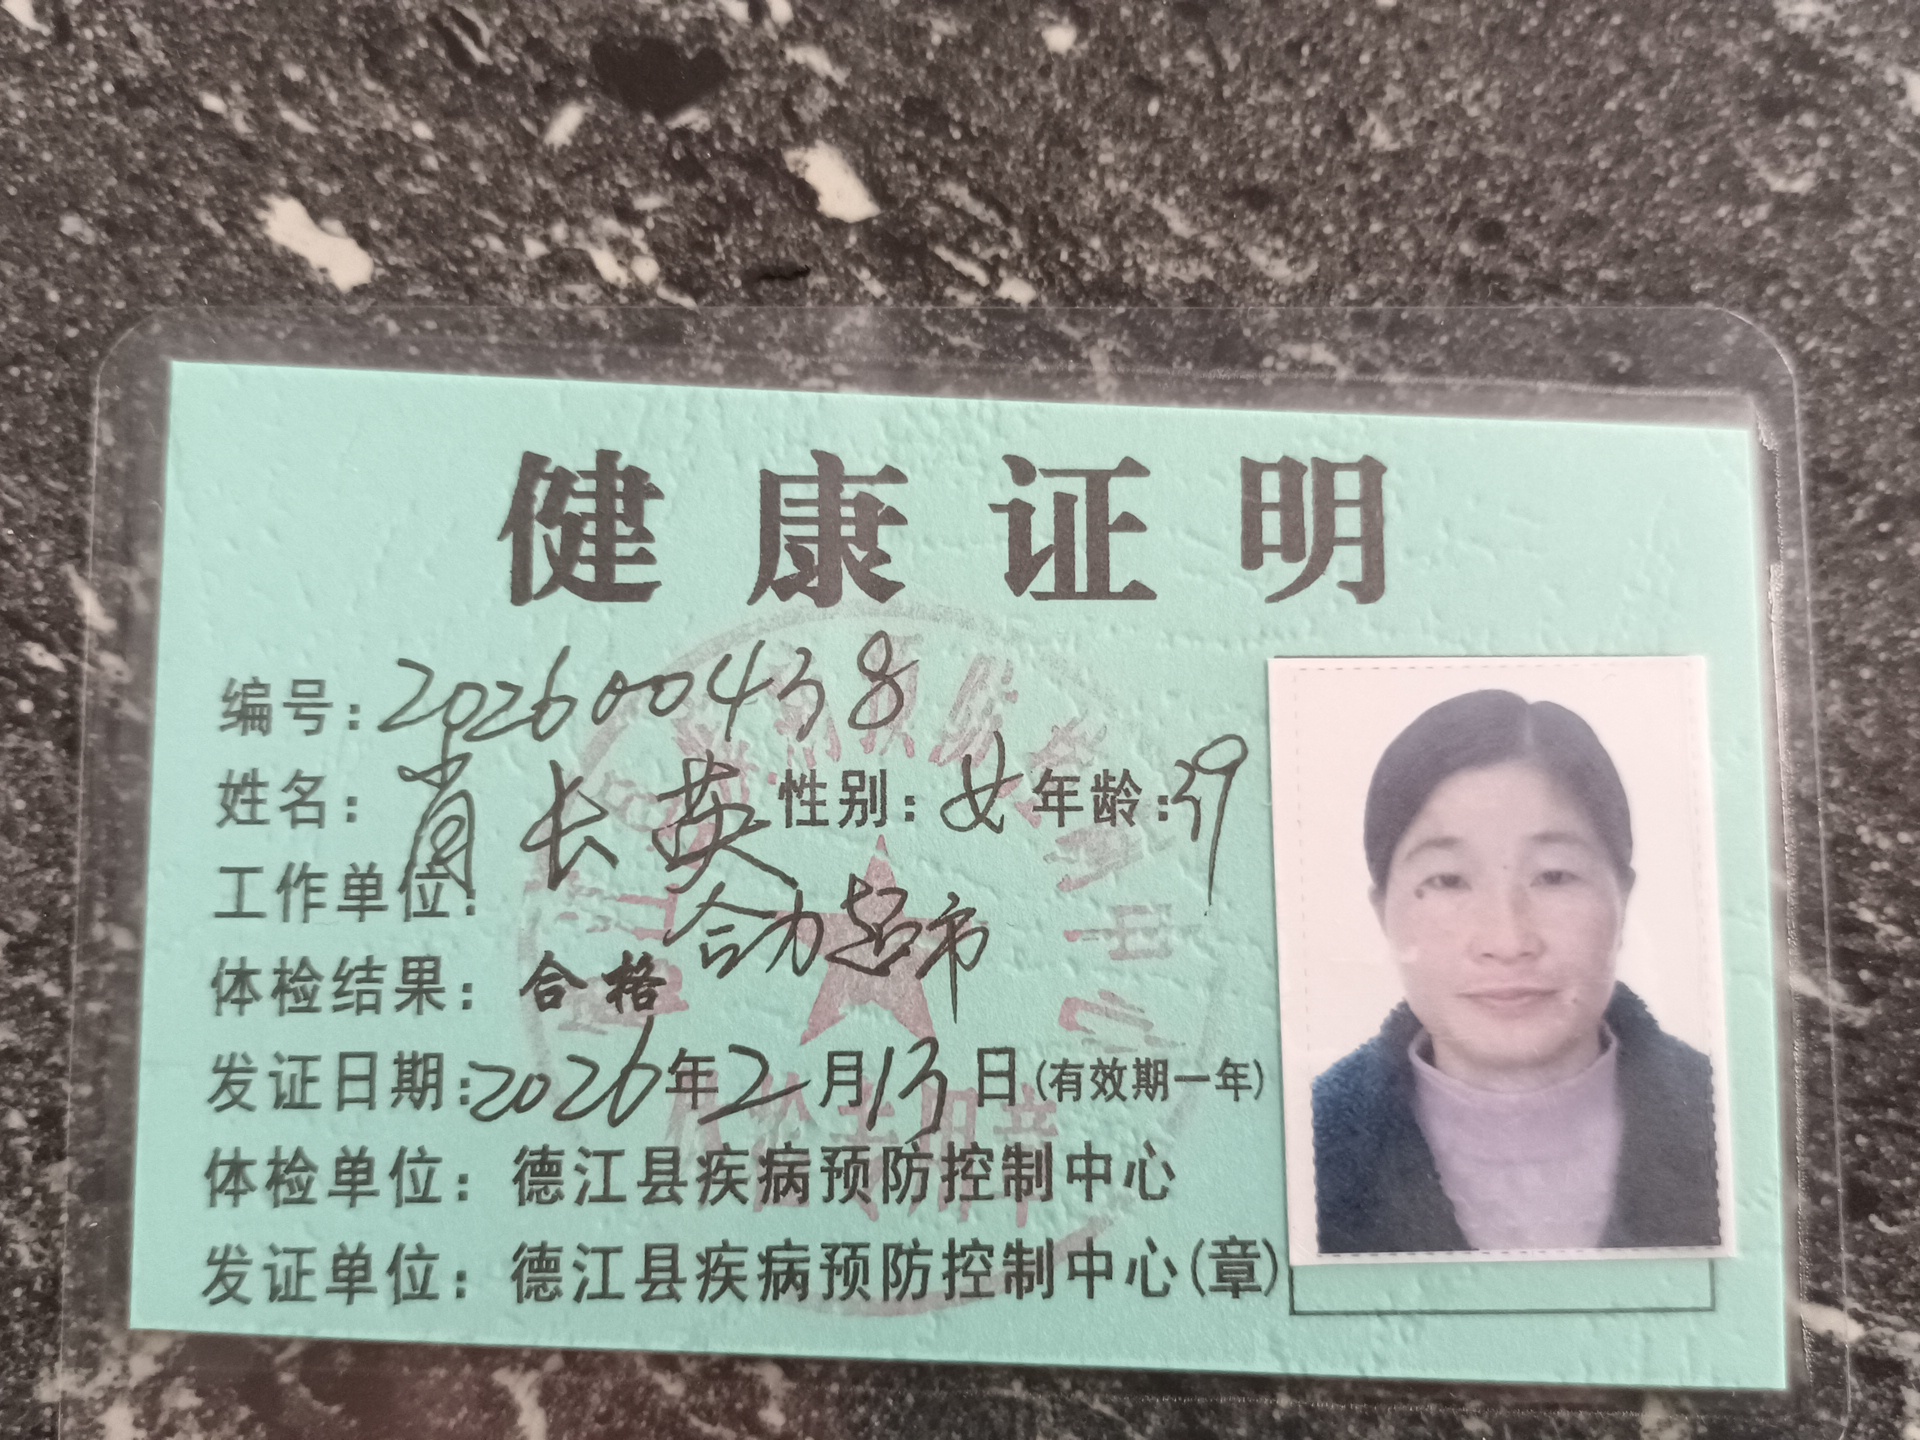 健康证明
编号：202600438
姓名：肖长英 性别：女 年龄：39
工作单位：合力超市
体检结果：合格
发证日期：2026年2月13日（有效期一年）
体检单位：德江县疾病预防控制中心
发证单位：德江县疾病预防控制中心（章）